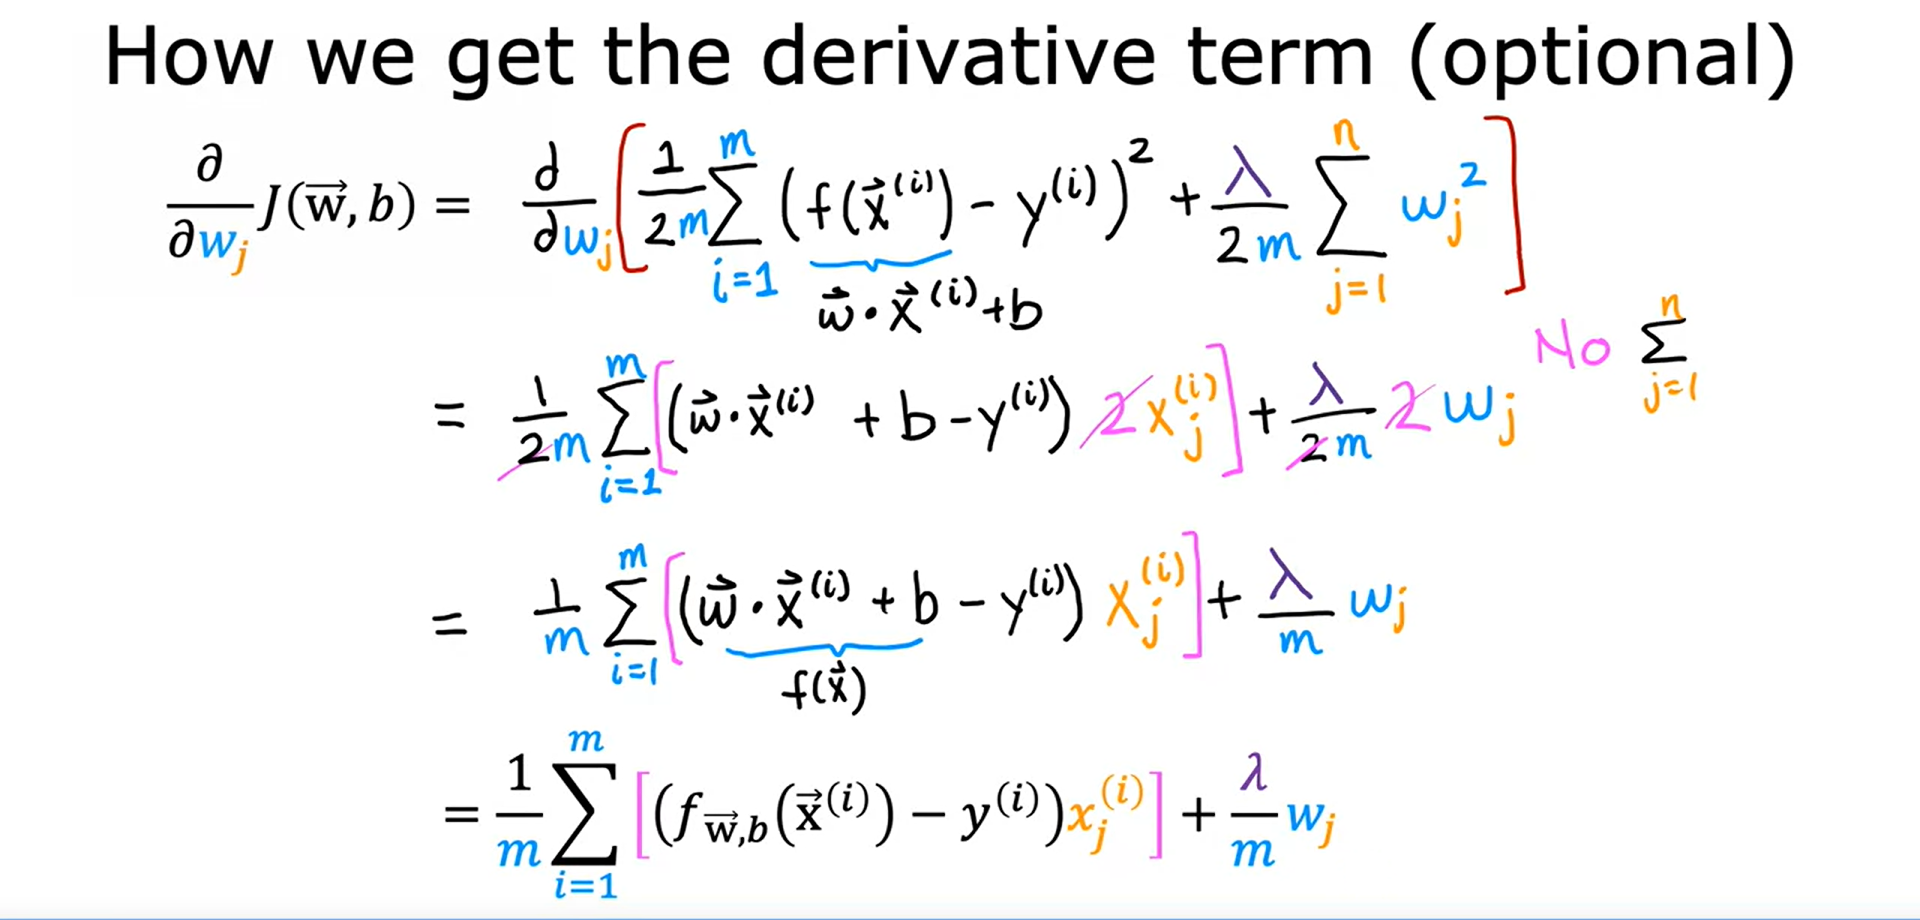 How we get the derivative term (optional)
∂/∂w_j J(w⃗, b) = d/dw_j [ 1/2m Σ_{i=1}^{m} (f(x⃗^(i)) − y^(i))^2 + λ/2m Σ_{j=1}^{n} w_j^2 ]
w⃗ · x⃗^(i) + b
= 1/2m Σ_{i=1}^{m} [ (w⃗ · x⃗^(i) + b − y^(i)) 2 x_j^(i) ] + λ/2m 2 w_j No Σ_{j=1}^{n}
= 1/m Σ_{i=1}^{m} [ (w⃗ · x⃗^(i) + b − y^(i)) x_j^(i) ] + λ/m w_j
f(x⃗)
= 1/m Σ_{i=1}^{m} [ (f_{w⃗,b}(x⃗^(i)) − y^(i)) x_j^(i) ] + λ/m w_j